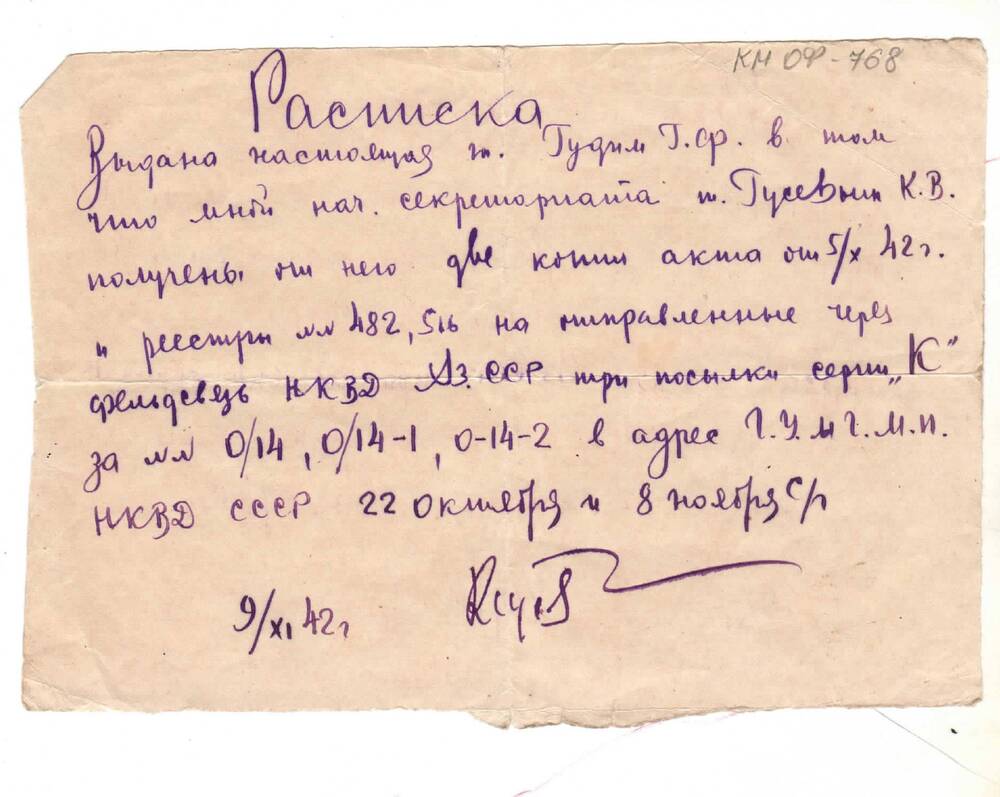 КМ ОФ-768
Расписка
Выдана настоящая т. Гудим Г.Ф. в том
что мной нач. секретариата т. Гусевым К.В.
получены от него две копии акта от 5/X 42 г.
и реестры №№ 482, 516 на отправленные через
фельдсвязь НКВД Аз. ССР три посылки серии „К"
за №№ 0/14, 0/14-1, 0-14-2 в адрес Г.У.
НКВД СССР 22 октября и 8 ноября с/г
9/XI 42 г